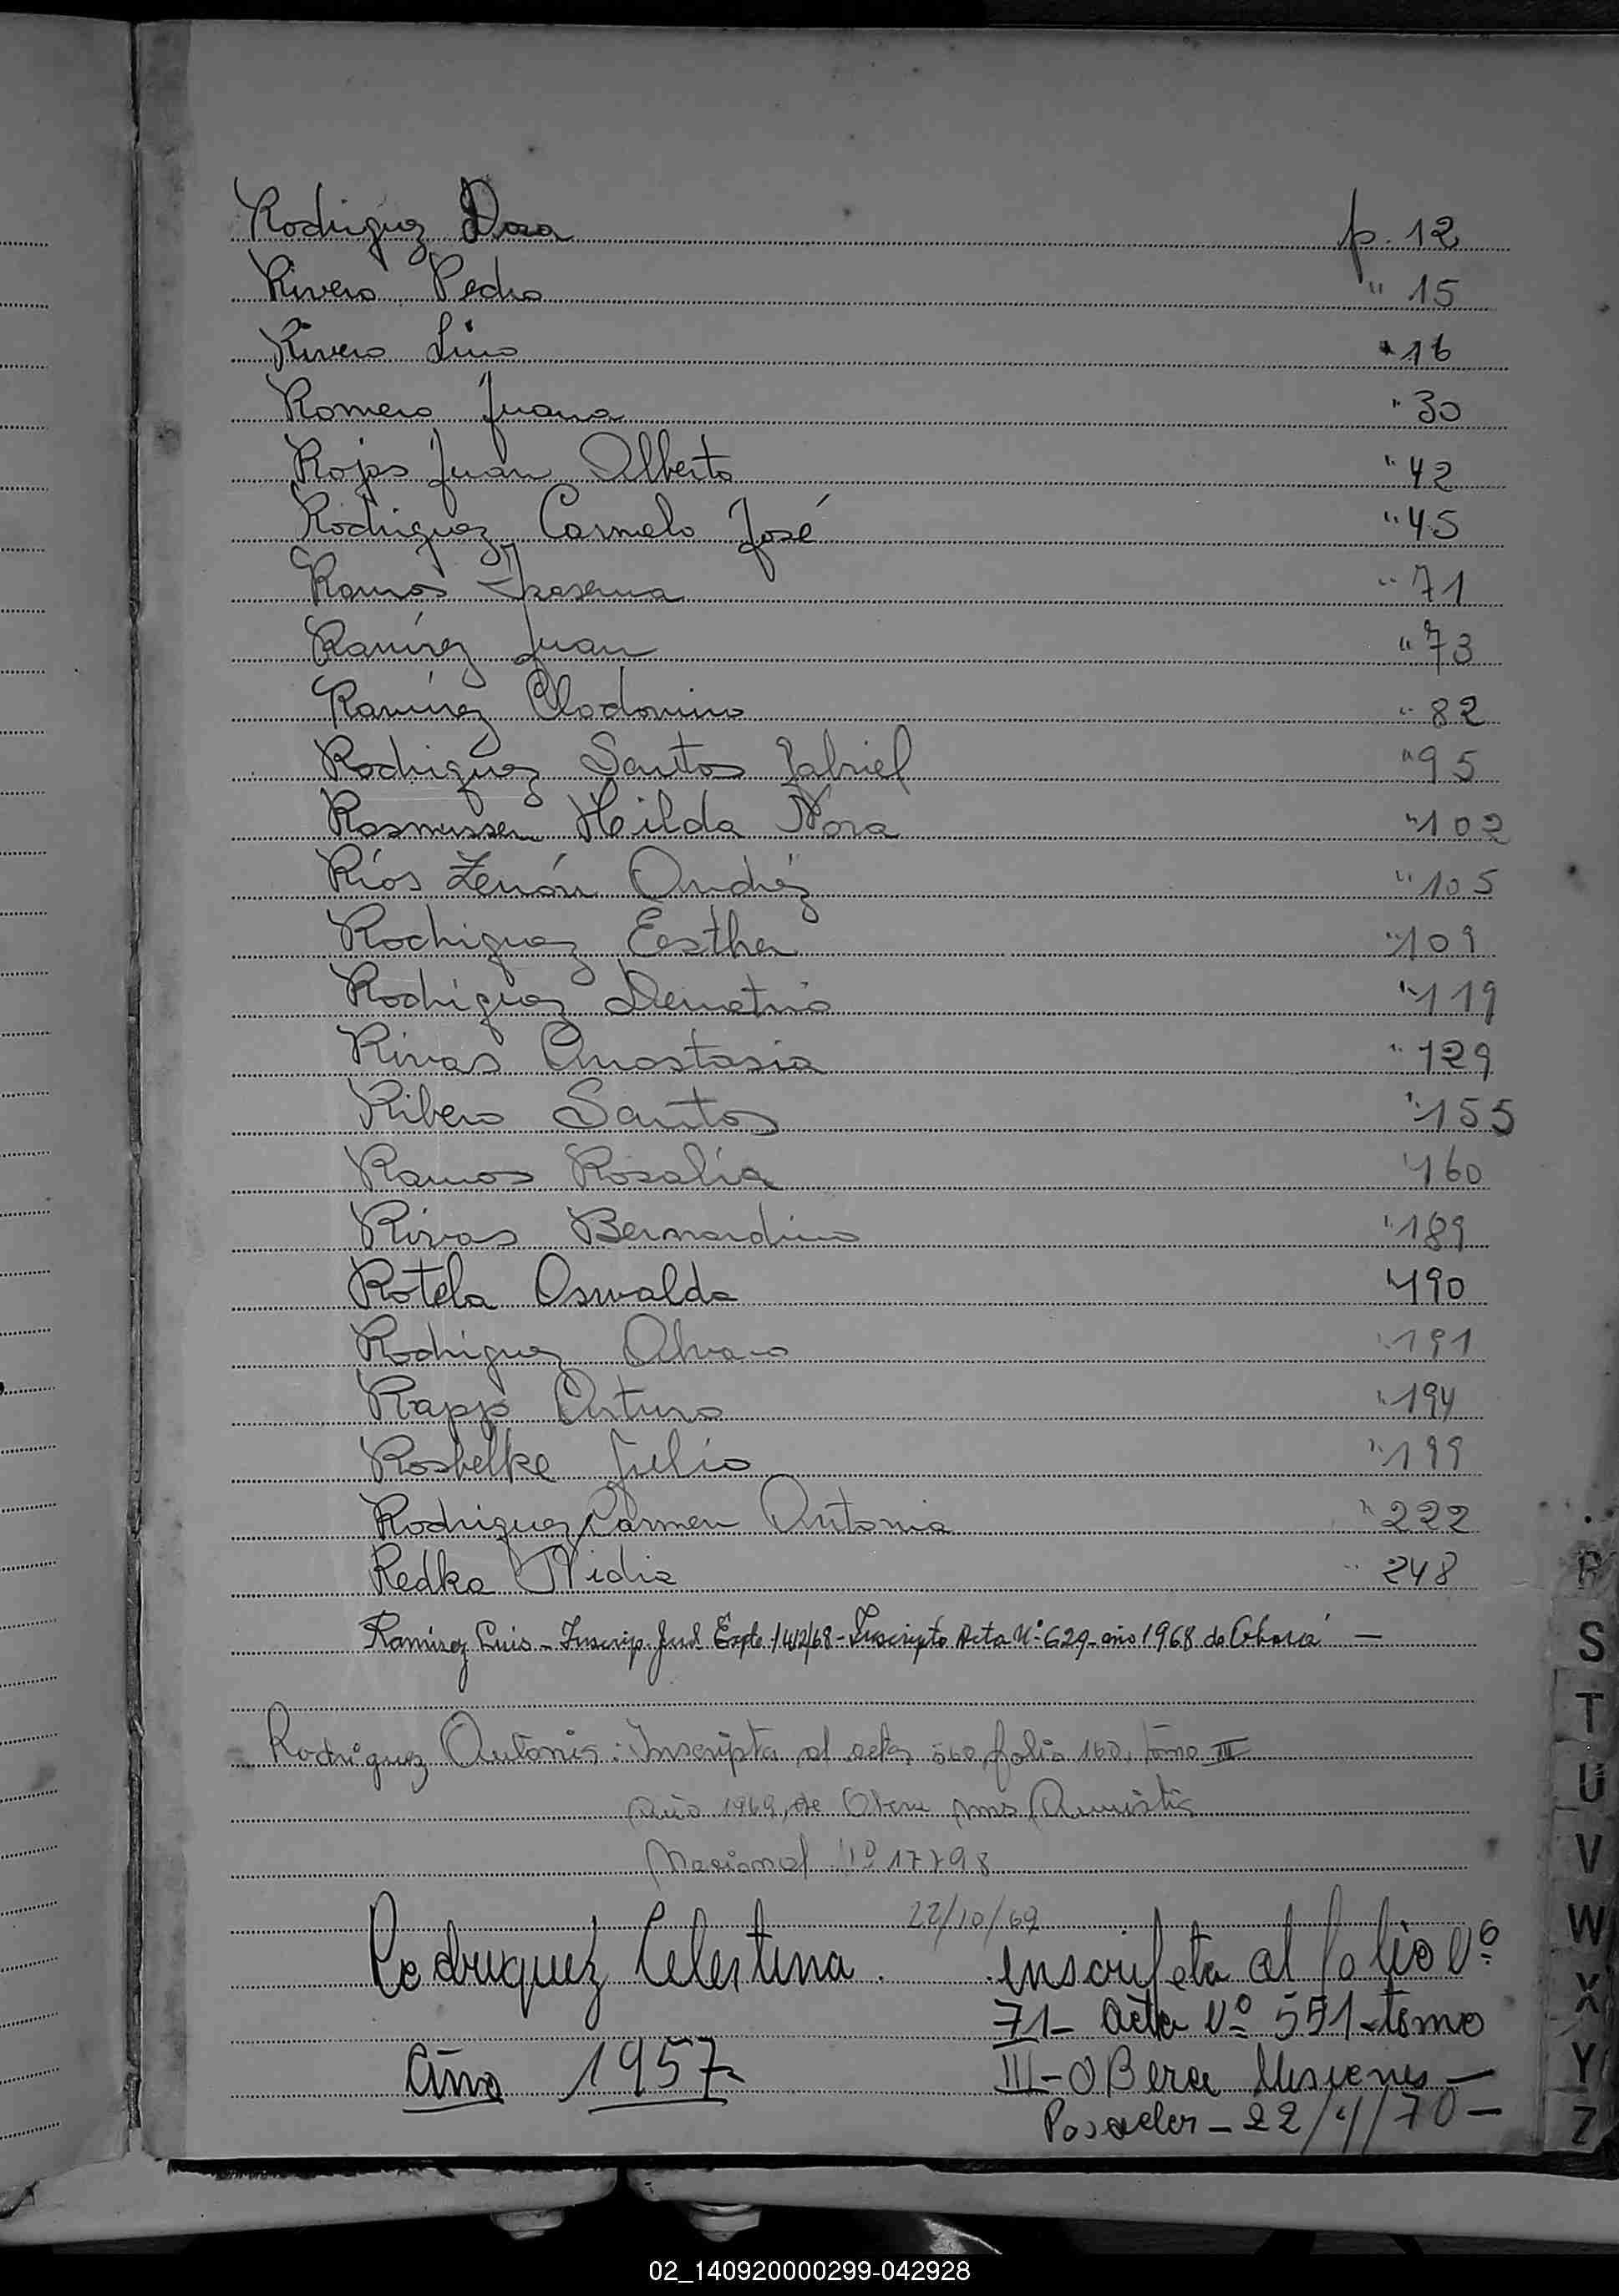 Rodriguez Dora p. 12
Rivero Pedro " 15
Rivero Lino " 16
Romero Juana " 30
Rojas Juan Alberto " 42
Rodriguez Carmelo José " 45
Ramos " 71
Ramírez Juan " 73
Ramírez Clodomiro " 82
Rodriguez Santos Gabriel " 95
Rasmussen Hilda Nora " 102
Ríos Zenón Andréz " 105
Rodriguez Eesther " 109
Rodríguez Demetrio " 119
Rivas Anastasia " 129
Ribero Santos " 155
Ramos Rosalía " 160
Rivas Bernardino " 189
Rotela Oswaldo " 190
Rodríguez Alvaro " 191
Rapp Arturo " 194
Rosbelke Julio " 199
Rodriguez Carmen Antonia " 222
Redka Nidia " 248
Ramírez Luis - Inscrip. Jud. Expte. 1412/68 - Inscripto Acta Nº 629 - año 1968 de Oberá —
Rodríguez Antonio: Inscripta al acta 560 folio 160, tomo III
Año 1969, de Obera Amnistia
Nacional Nº 17798
22/10/69
Rodriguez Celestina. inscripta al folio Nº
71- Acta Nº 551- tomo
Año 1957- III- OBera Misiones —
Posadas - 22/4/70 —
R
S
T
U
V
W
X
Y
Z
02_140920000299-042928